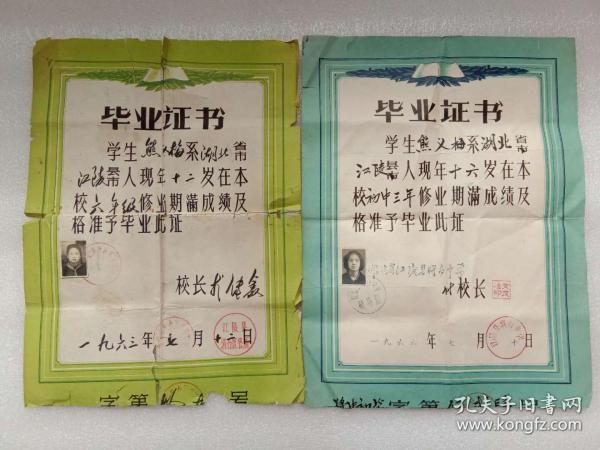 毕业证书
学生熊义梅系湖北省市
江陵县市人现年十二岁在本
校六年级修业期满成绩及
格准予毕业此证
校长
一九六三年七月十二日
字第 号
毕业证书
学生熊义梅系湖北省市
江陵县市人现年十六岁在本
校初中三年修业期满成绩及
格准予毕业此证
代校长
一九六六年七月十日
字第
孔夫子旧书网
www.kongfz.com